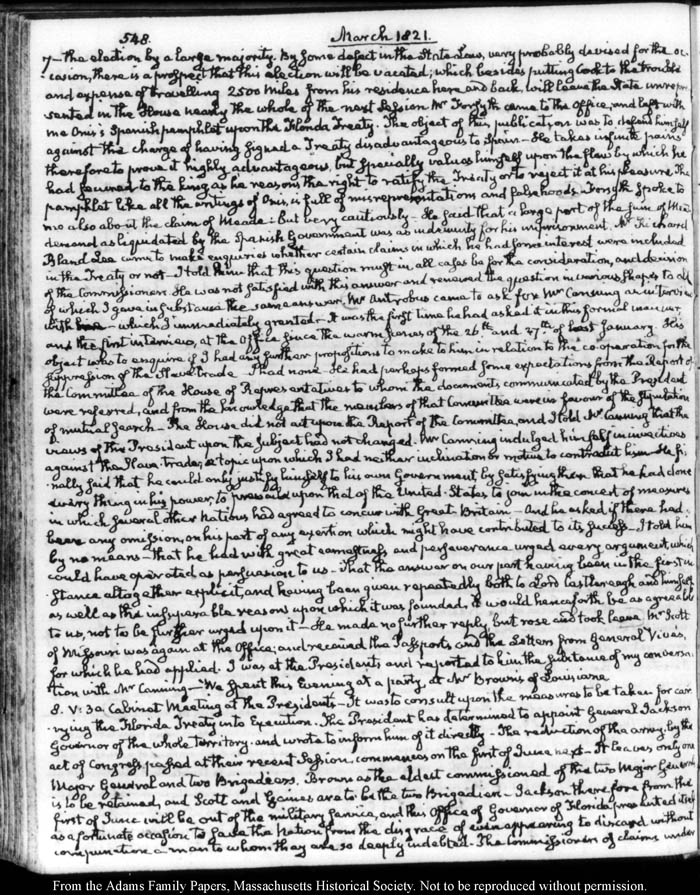 548.
March 1821.
7 — the election by a large majority. By some defect in the State Law, very probably devised for the oc-
casion, there is a prospect that this election will be vacated; which besides putting Cook to the trouble
and expense of travelling 2500 miles from his residence here and back, will leave the State unrepre-
sented in the House nearly the whole of the next Session. Mr Forsyth came to the office, and left with
me Onis's Spanish pamphlet upon the Florida Treaty. The object of this publication was to defend himself
against the charge of having signed a Treaty disadvantageous to Spain — He takes infinite pains
therefore to prove it highly advantageous, but specially values himself upon the flaw by which he
had secured to the king as he reasons the right to ratify the Treaty or to reject it at his pleasure. The
pamphlet like all the writings of Onis, is full of misrepresentations and falsehoods. Forsyth spoke to
me also about the claim of Meade: but very cautiously — He said that a large part of the sum of Meade's
demand as liquidated by the Spanish Government was as indemnity for his imprisonment. Mr Richard
Bland Lee came to make enquiries whether certain claims in which he had some interest were included
in the Treaty or not — I told him that this question must in all cases be for the consideration, and decision
of the Commissioners. He was not satisfied with this answer and renewed the question in various shapes to all
of which I gave in substance the same answer. Mr Antrobus came to ask for Mr Canning an interview
with me — which I immediately granted — It was the first time he had asked it in this formal manner,
and the first interview, at the Office since the warm scenes of the 26th and 27th of last January. His
object was to enquire if I had any further propositions to make to him in relation to the co-operation for the
suppression of the Slave trade — I had none. He had perhaps formed some expectations from the Report of
the Committee of the House of Representatives to whom the documents communicated by the President
were referred, and from the knowledge that the members of that Committee were in favour of the stipulation
of mutual search — The House did not act upon the Report of the Committee, and I told Mr Canning that the
views of the President upon the subject had not changed. Mr Canning indulged himself in invectives
against the Slave Trade; a topic upon which I had neither inclination or motive to contradict him. He fi-
nally said that he could only justify himself to his own Government by satisfying them that he had done
every thing in his power, to prevail upon that of the United States to join in the concert of measures
in which several other Nations had agreed to concur with Great-Britain — And he asked if there had
been any omission, on his part of any exertion which might have contributed to its success. I told him
by no means — that he had with great earnestness and perseverance urged every argument, which
could have operated as persuasion to us — That the answer on our part having been in the first in-
stance altogether explicit, and having been given repeatedly both to Lord Castlereagh and himself,
as well as the insuperable reasons upon which it was founded, it would henceforth be as agreeable
to us, not to be further urged upon it — He made no further reply, but rose and took leave. Mr Scott
of Missouri was again at the Office; and received the Passports and the Letters from General Vives,
for which he had applied. I was at the Presidents and reported to him the substance of my conversa-
tion with Mr Canning — We spent this Evening at a party, at Mr Brown's of Louisiana
8. V: 30. Cabinet Meeting at the Presidents — It was to consult upon the measures to be taken for car-
rying the Florida Treaty into Execution. The President has determined to appoint General Jackson
Governor of the whole Territory. and wrote to inform him of it directly — The reduction of the army, by the
act of Congress passed at their recent Session, commences on the first of June next — It leaves only one
Major General and two Brigadiers. Brown as the eldest commissioned of the two Major Generals
is to be retained, and Scott and Gaines are to be the two Brigadiers — Jackson therefore from the
first of June will be out of the military service, and this Office of Governor of Florida presented itself
as a fortunate occasion to save the Nation from the disgrace of even appearing to discard without
compunction a man to whom they are so deeply indebted. The Commissioners of claims under
From the Adams Family Papers, Massachusetts Historical Society. Not to be reproduced without permission.